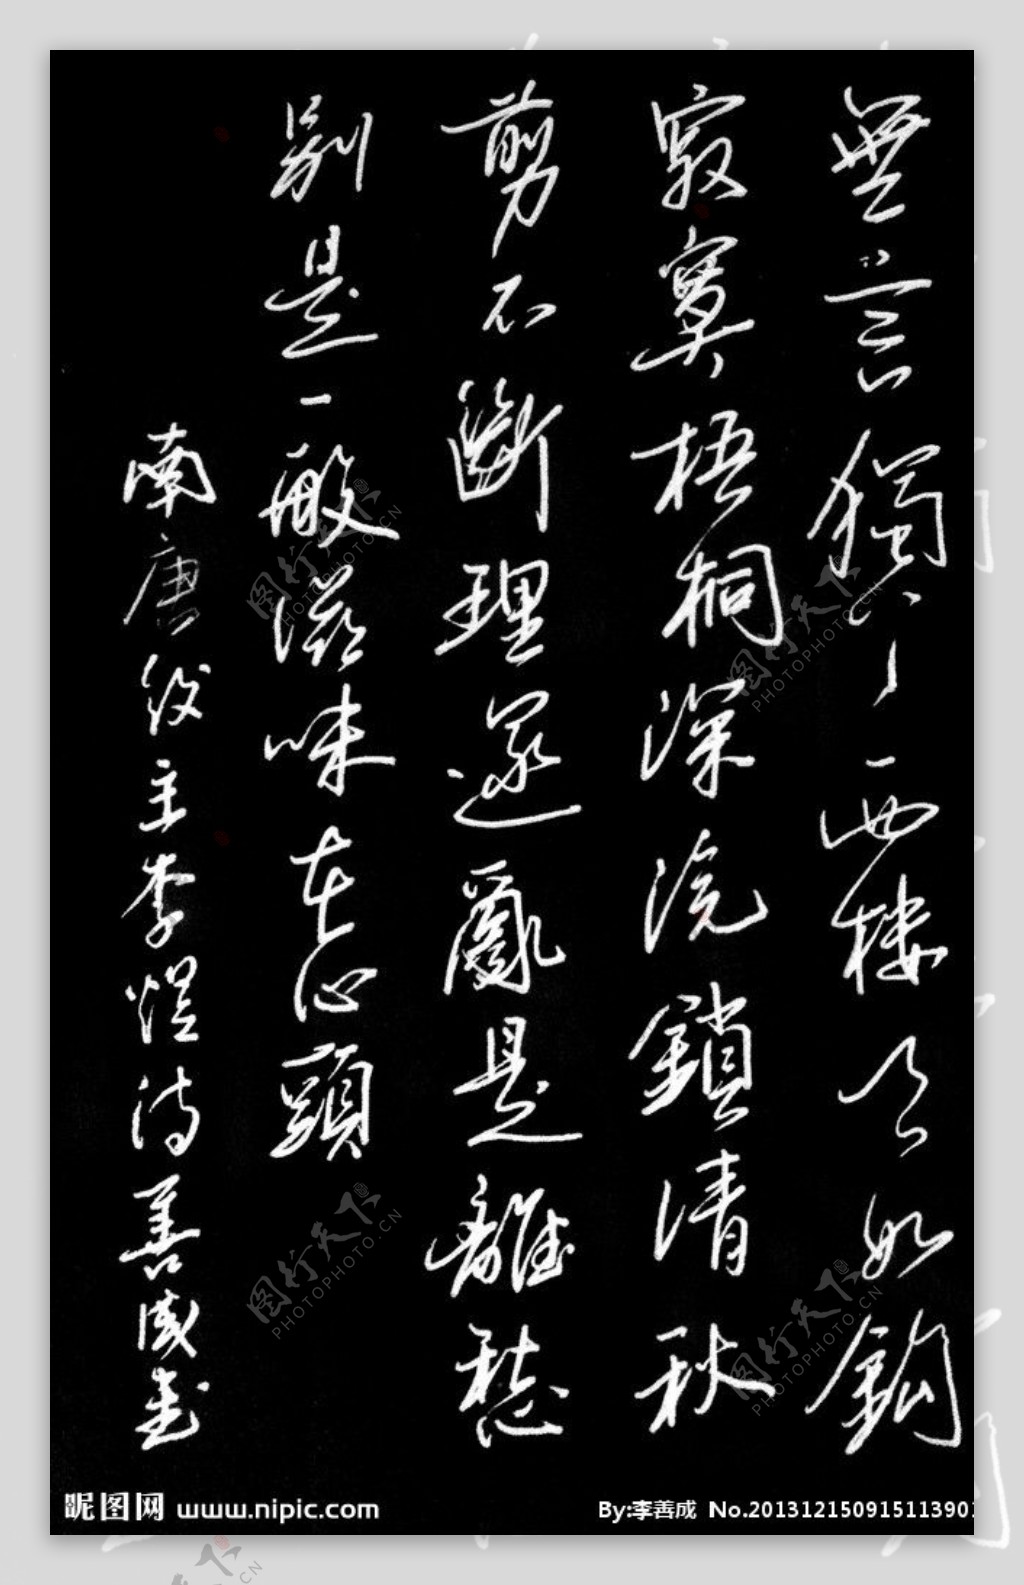 無言獨上西樓月如鈎
寂寞梧桐深院鎖清秋
剪不斷理還亂是離愁
别是一般滋味在心頭
南唐後主李煜詩善成書
图行天下 PHOTOPHOTO.CN
图行天下 PHOTOPHOTO.CN
图行天下 PHOTOPHOTO.CN
图行天下 PHOTOPHOTO.CN
昵图网 www.nipic.com
By:李善成 No.20131215091511390